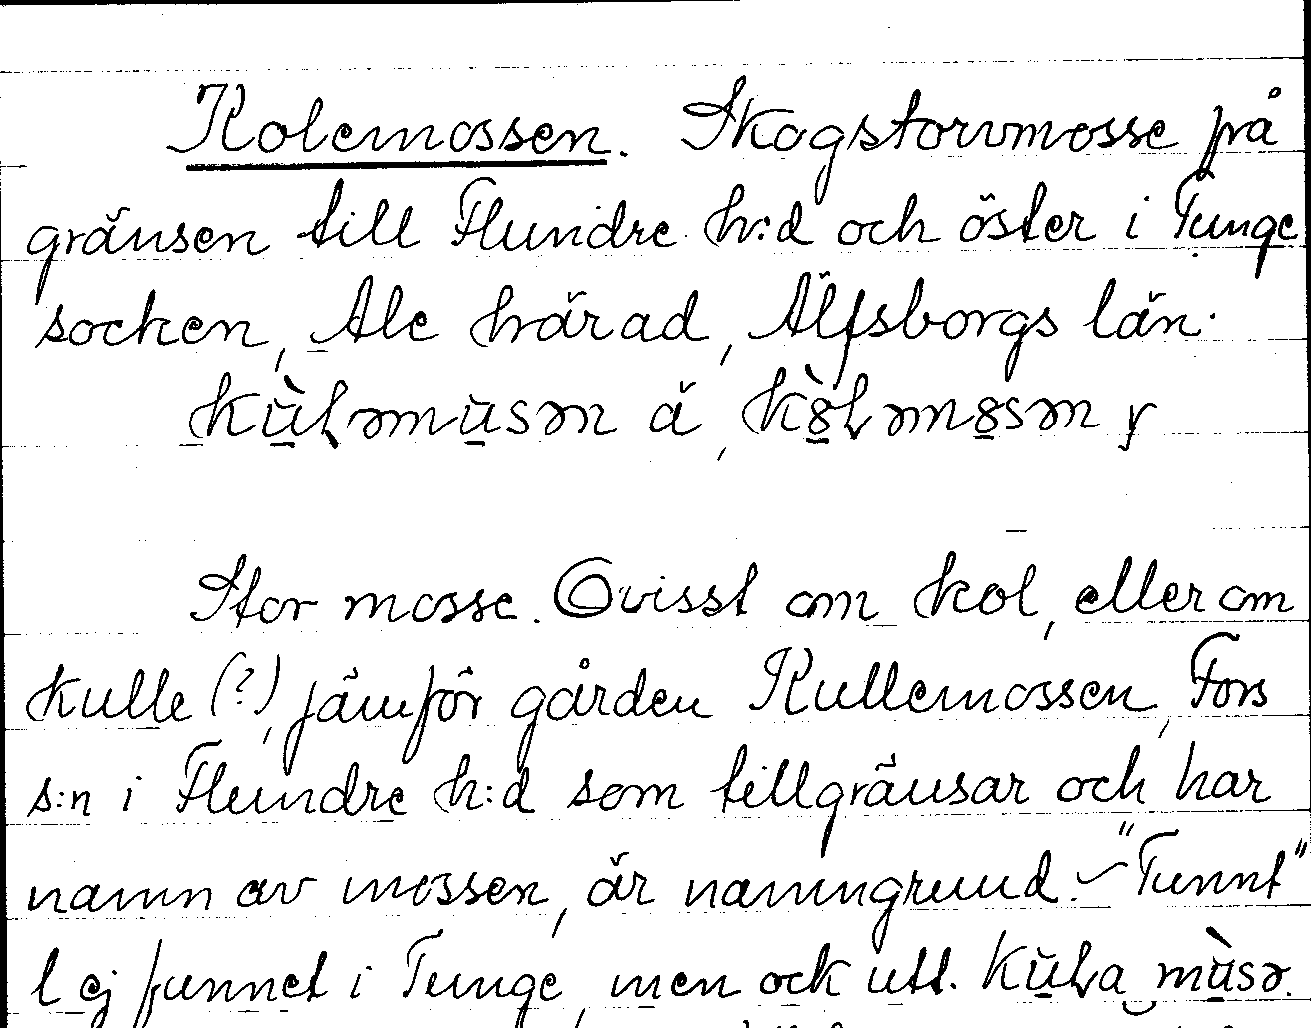 Kolemossen. Skogstorvmosse på
gränsen till Flundre h:d och öster i Tunge
socken, Ale härad, Älfsborgs län.
ä,
Stor mosse. Ovisst om kol, eller om
kulle (?), jämför gården Kullemossen, Fors
s:n i Flundre h:d som tillgränsar och har
namn av mossen, är namngrund. "Tunnt"
l ej funnet i Tunge, men ock utt.